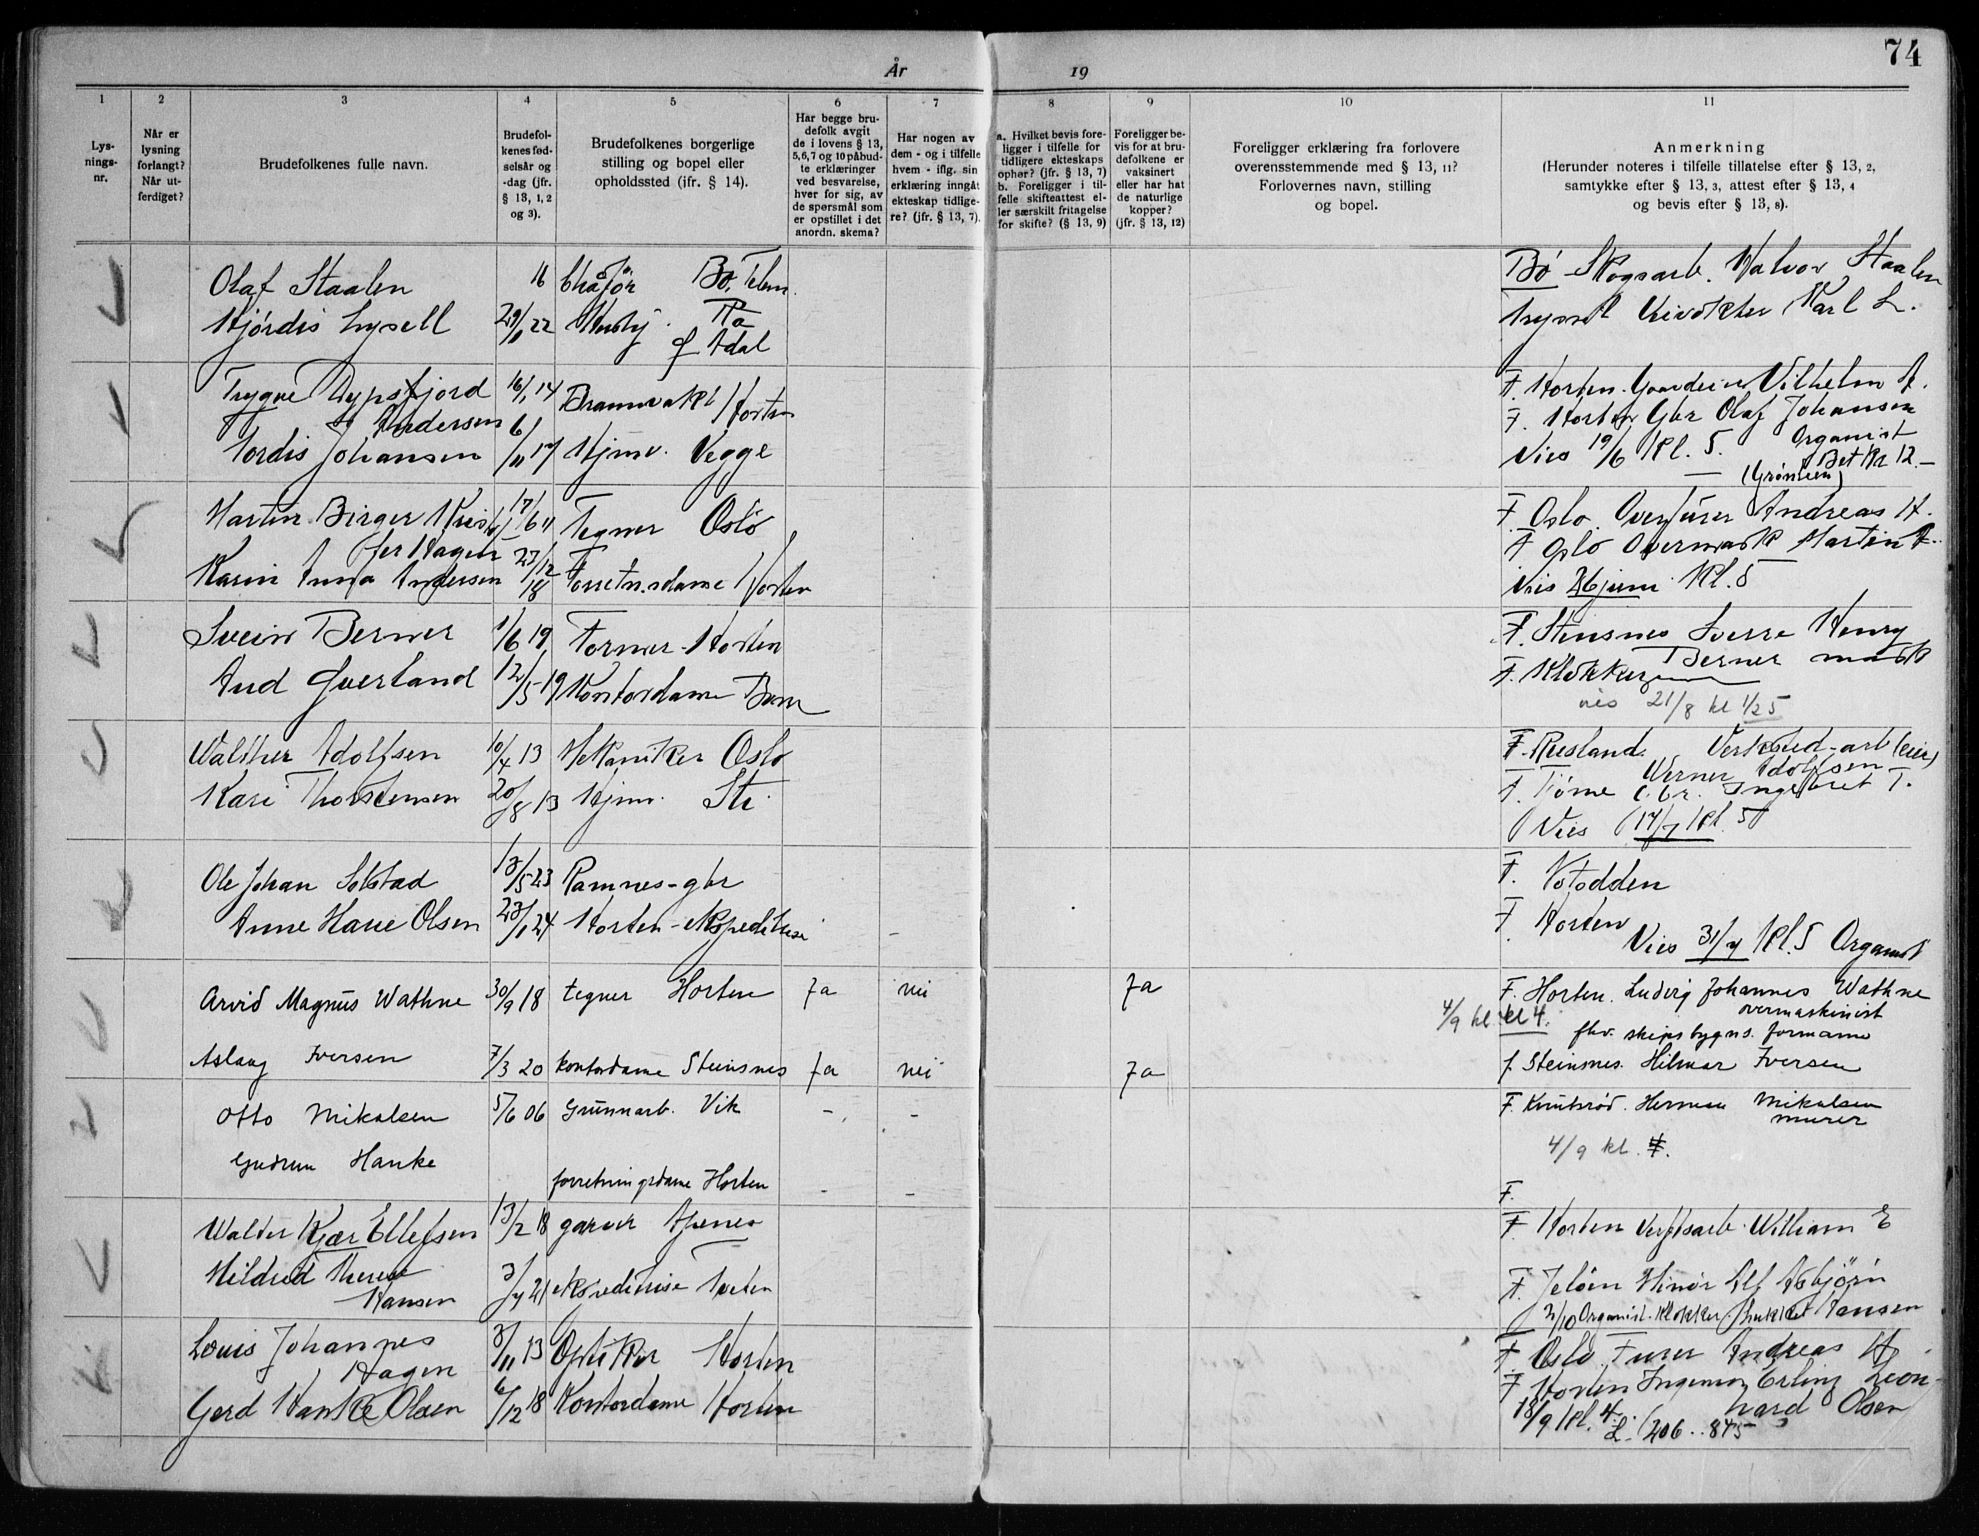 År 19
74
1 2 3 4 5 6 7 8 9 10 11
Lys-
nings-
nr.
Når er
lysning
forlangt?
Når ut-
ferdiget?
Brudefolkenes fulle navn.
Brudefol-
kenes fød-
selsår og
-dag (jfr.
§ 13, 1, 2
og 3).
Brudefolkenes borgerlige
stilling og bopel eller
opholdssted (ifr. § 14).
Har begge bru-
defolk avgit
de i lovens § 13,
5,6,7 og 10 påbud-
te erklæringer
ved besvarelse,
hver for sig, av
de spørsmål som
er opstillet i det
anordn. skema?
Har nogen av
dem - og i tilfelle
hvem - iflg. sin
erklæring inngåt
ekteskap tidlige-
re? (jfr. § 13, 7).
a. Hvilket bevis fore-
ligger i tilfelle for
tidligere ekteskaps
ophør? (jfr. § 13, 7)
b. Foreligger i til-
felle skifteattest el-
ler særskilt fritagelse
for skifte? (§ 13, 9)
Foreligger be-
vis for at bru-
defolkene er
vaksinert
eller har hat
de naturlige
kopper?
(jfr. § 13, 12)
Foreligger erklæring fra forlovere
overensstemmende med § 13, 11?
Forlovernes navn, stilling
og bopel.
Anmerkning
(Herunder noteres i tilfelle tillatelse efter § 13, 2,
samtykke efter § 13, 3, attest efter § 13, 4
og bevis efter § 13, 8).
Olaf Staalen 16 Bø, Telem. Bø Skogsarb. Halvor Staalen
Hjørdis Lysell 22 Karl L.
Ådal
Trygve 16/1 14 Brannvakt Horten F. Horten Vilhelm A.
Andersen F. Horten Gbr Olaf Johansen
Tordis Johansen 6/11 17 Hjmv. Begge Vies 19/6 Kl. 5. Organist
Martin Birger Tegner Oslo F. Oslo. Andreas H.
Hagen
Karin Anna Andersen 23/12 18 Forretn.dame Horten F Oslo Martin A.
Vies 26 juni Kl. 5
Svein Berner 1/6 19 Former Horten F. Steinsnes Sverre Henry
Berner
Aud Gverland 12/5 19 Kontordame F. Klokkeren
vies 21/8 kl 1/2 5
Walther Adolfsen 10/4 13 Mekaniker Oslo F. Verksted-arb (eier)
Werner Adolfsen
Kari Thorstensen 20/8 13 Hjmv. F. Tjøme Gbr. Ingebret T.
Vies 17/7 Kl. 5
Ole Johan Solstad 13/5 23 Ramnes - gbr F. Notodden
Anne Marie Olsen 23/1 24 Horten - ekspeditrise - F. Horten
Vies 31/7 Kl. 5 Organist
Arvid Magnus Wathne 30/9 18 tegner Horten Ja nei Ja F. Horten. Ludvig Johannes Wathne
overmaskinist
4/9 kl. kl 4. fhv. skipsbygns. formann
Aslaug Iversen 7/3 20 kontordame Steinsnes Ja nei Ja f. Steinsnes. Hilmar Iversen
Otto Mikalsen 5/6 06 Grunnarb. Vik - - F. Knutsrød. Herman Mikalsen
murer
4/9 kl.
Gudrun Hanke forretningsdame Horten - - F.
Walter Kjær Ellefsen 13/2 18 garver F. Horten Verftsarb. William E
Hildred Therese
Hansen 3/7 21 ekspeditrise F. Jeløen Alf Asbjørn
Hansen
2/10 Organist. Klokker
Louis Johannes
Hagen 3/11 13 Optiker Horten F. Oslo. Andreas H
Gerd Hanke Olsen 6/12 18 Kontordame Horten F Horten Ingeniør Erling Leon-
hard Olsen
18/9 Kl. 4.